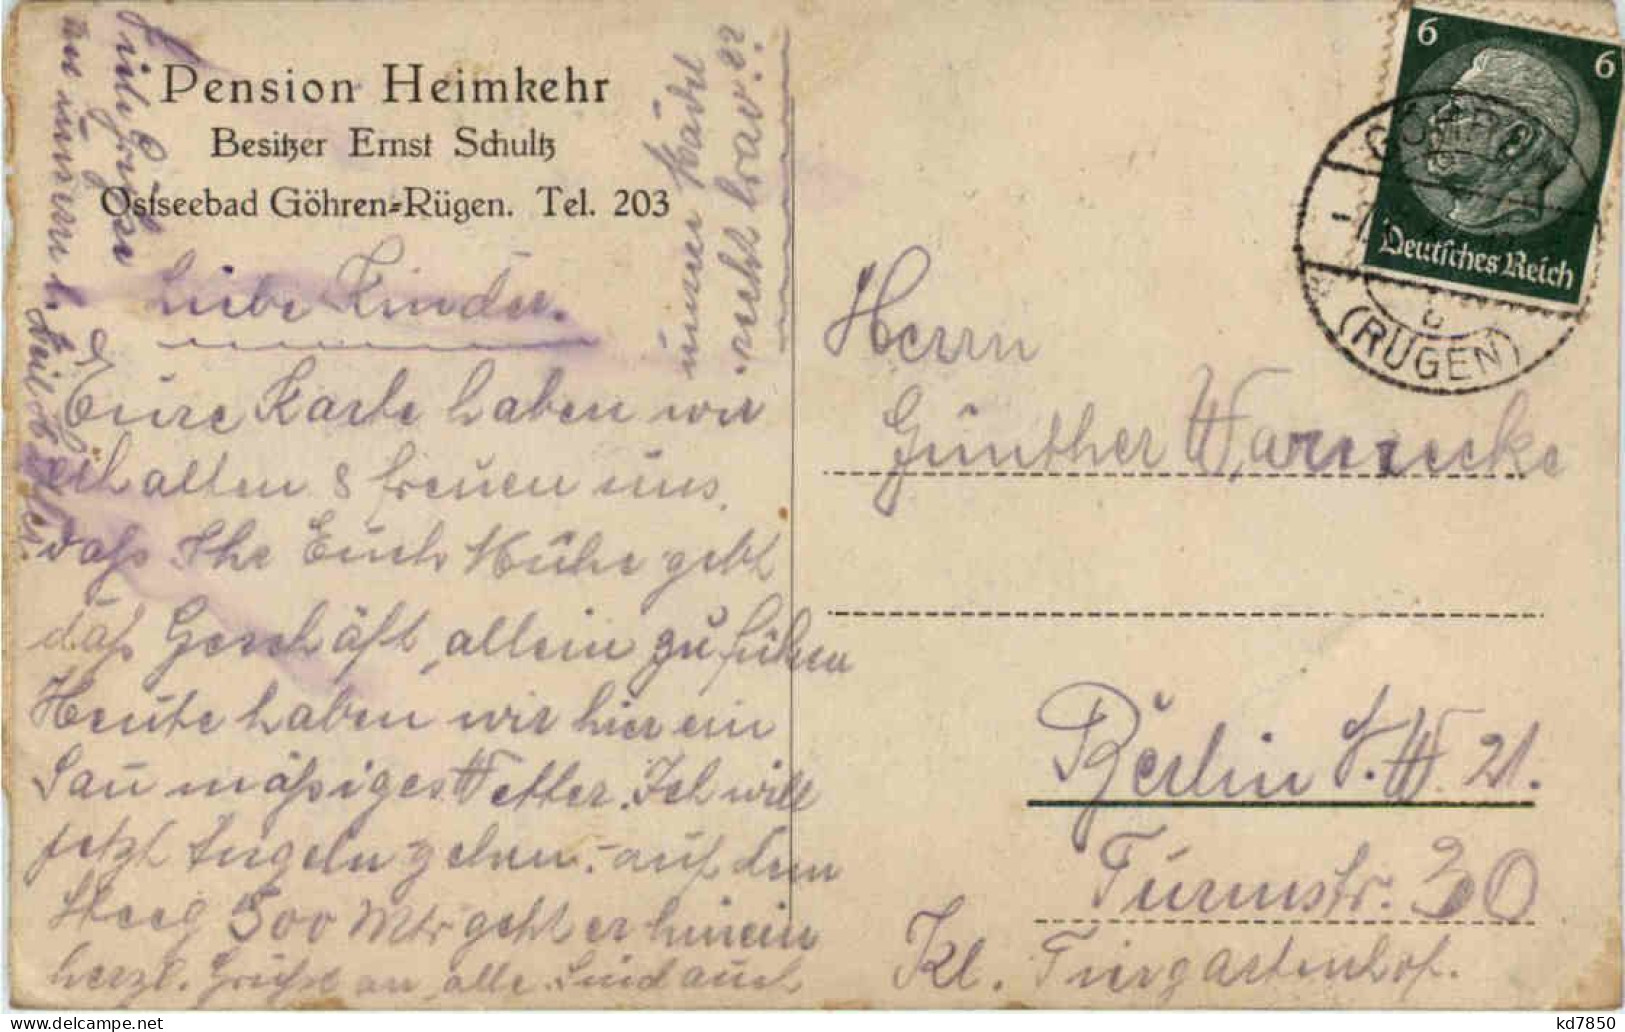 Pension Heimkehr
Besitzer Ernst Schultz
Ostseebad Göhren-Rügen. Tel. 203
Liebe Kinder.
Eure Karte haben wir
erhalten & freuen uns,
daß Ihr Euch Mühe gebt
daß Geschäft, allein zu führen
Heute haben wir hier ein
Sau mäßiges Wetter. Ich will
jetzt Angeln gehen. auf dem
Steeg 500 Mtr geht er hinein
herzl. Grüße an alle. Sind auch
unsere Mädel
recht brav. ??
viele Grüße
an unsern l.
6
6
Deutsches Reich
GÖHREN
(RÜGEN)
Herrn
Günther Warnecke
Berlin N.W 21.
Turmstr. 30
Kl. Tiergartenhof.
kd7850